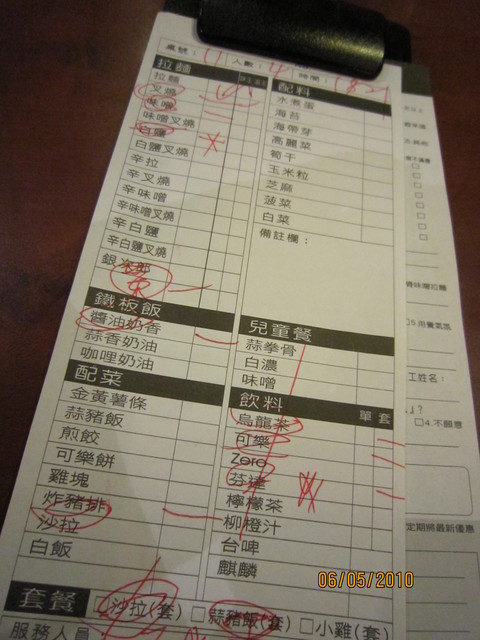 桌號： 11 人數： 4 時間： 1821
拉麵
拉麵
叉燒
味噌
味噌叉燒
白鹽
白鹽叉燒
辛拉
辛叉燒
辛味噌
辛味噌叉燒
辛白鹽
辛白鹽叉燒
銀次郎
鐵板飯
醬油奶香
蒜香奶油
咖哩奶油
配菜
金黃薯條
蒜豬飯
煎餃
可樂餅
雞塊
炸豬排
沙拉
白飯
配料
水煮蛋
海苔
海帶芽
高麗菜
筍干
玉米粒
芝麻
菠菜
白菜
備註欄：
兒童餐
蒜拳骨
白濃
味噌
飲料 單 套
烏龍茶
可樂
Zero
芬達
檸檬茶
柳橙汁
台啤
麒麟
套餐 □沙拉(套) □蒜豬飯(套) □小雞(套)
服務人員
工姓名：
□4.不願意
定期將最新優惠
06/05/2010